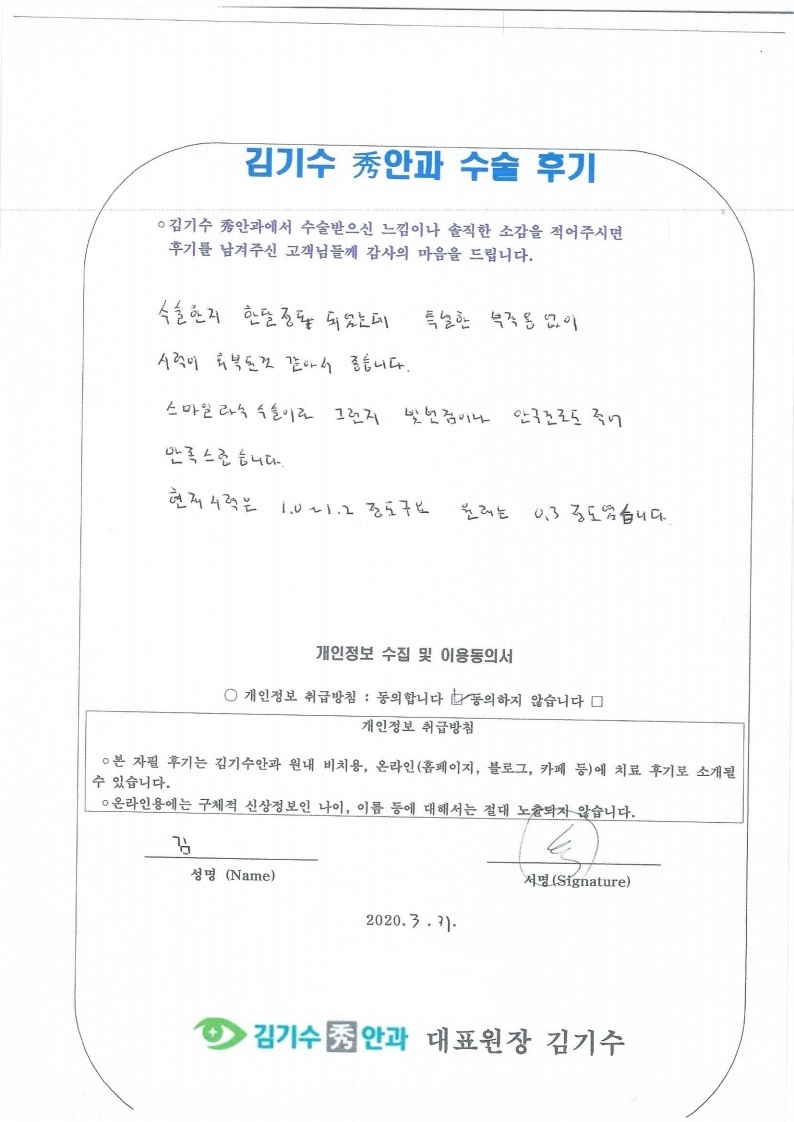 김기수 秀안과 수술 후기
○김기수 秀안과에서 수술받으신 느낌이나 솔직한 소감을 적어주시면
후기를 남겨주신 고객님들께 감사의 마음을 드립니다.
수술한지 한달정도 되었는데 특별한 부작용 없이
시력이 회복된것 같아서 좋습니다.
스마일라식 수술이라 그런지 빛번짐이나 안구건조도 적어
만족스럽습니다.
현재 시력은 1.0~1.2 정도구요 원래는 0.3 정도였습니다.
개인정보 수집 및 이용동의서
○ 개인정보 취급방침 : 동의합니다 ☑ 동의하지 않습니다 □
개인정보 취급방침
○본 자필 후기는 김기수안과 원내 비치용, 온라인(홈페이지, 블로그, 카페 등)에 치료 후기로 소개될
수 있습니다.
○온라인용에는 구체적 신상정보인 나이, 이름 등에 대해서는 절대 노출되지 않습니다.
김
성명 (Name) 서명(Signature)
2020. 3. 31.
김기수 秀 안과 대표원장 김기수